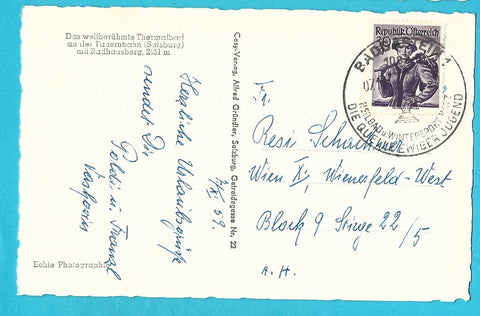 Das weltberühmte Thermalbad
an der Tauernbahn (Salzburg)
mit Radhausberg, 2651 m
Herzliche Urlaubsgrüße
sendet Dir
Poldi u. Franzl
Echte Photographie
Cosy-Verlag, Alfred Gründler, Salzburg, Getreidegasse Nr. 22
Republik Österreich
BADGASTEIN
HEILBAD u. WINTERSPORTPLATZ
DIE QUELLE EWIGER JUGEND
Fr.
Resi
Wien X, Wienerfeld-West
Block 9 Stiege 22/5
A.H.